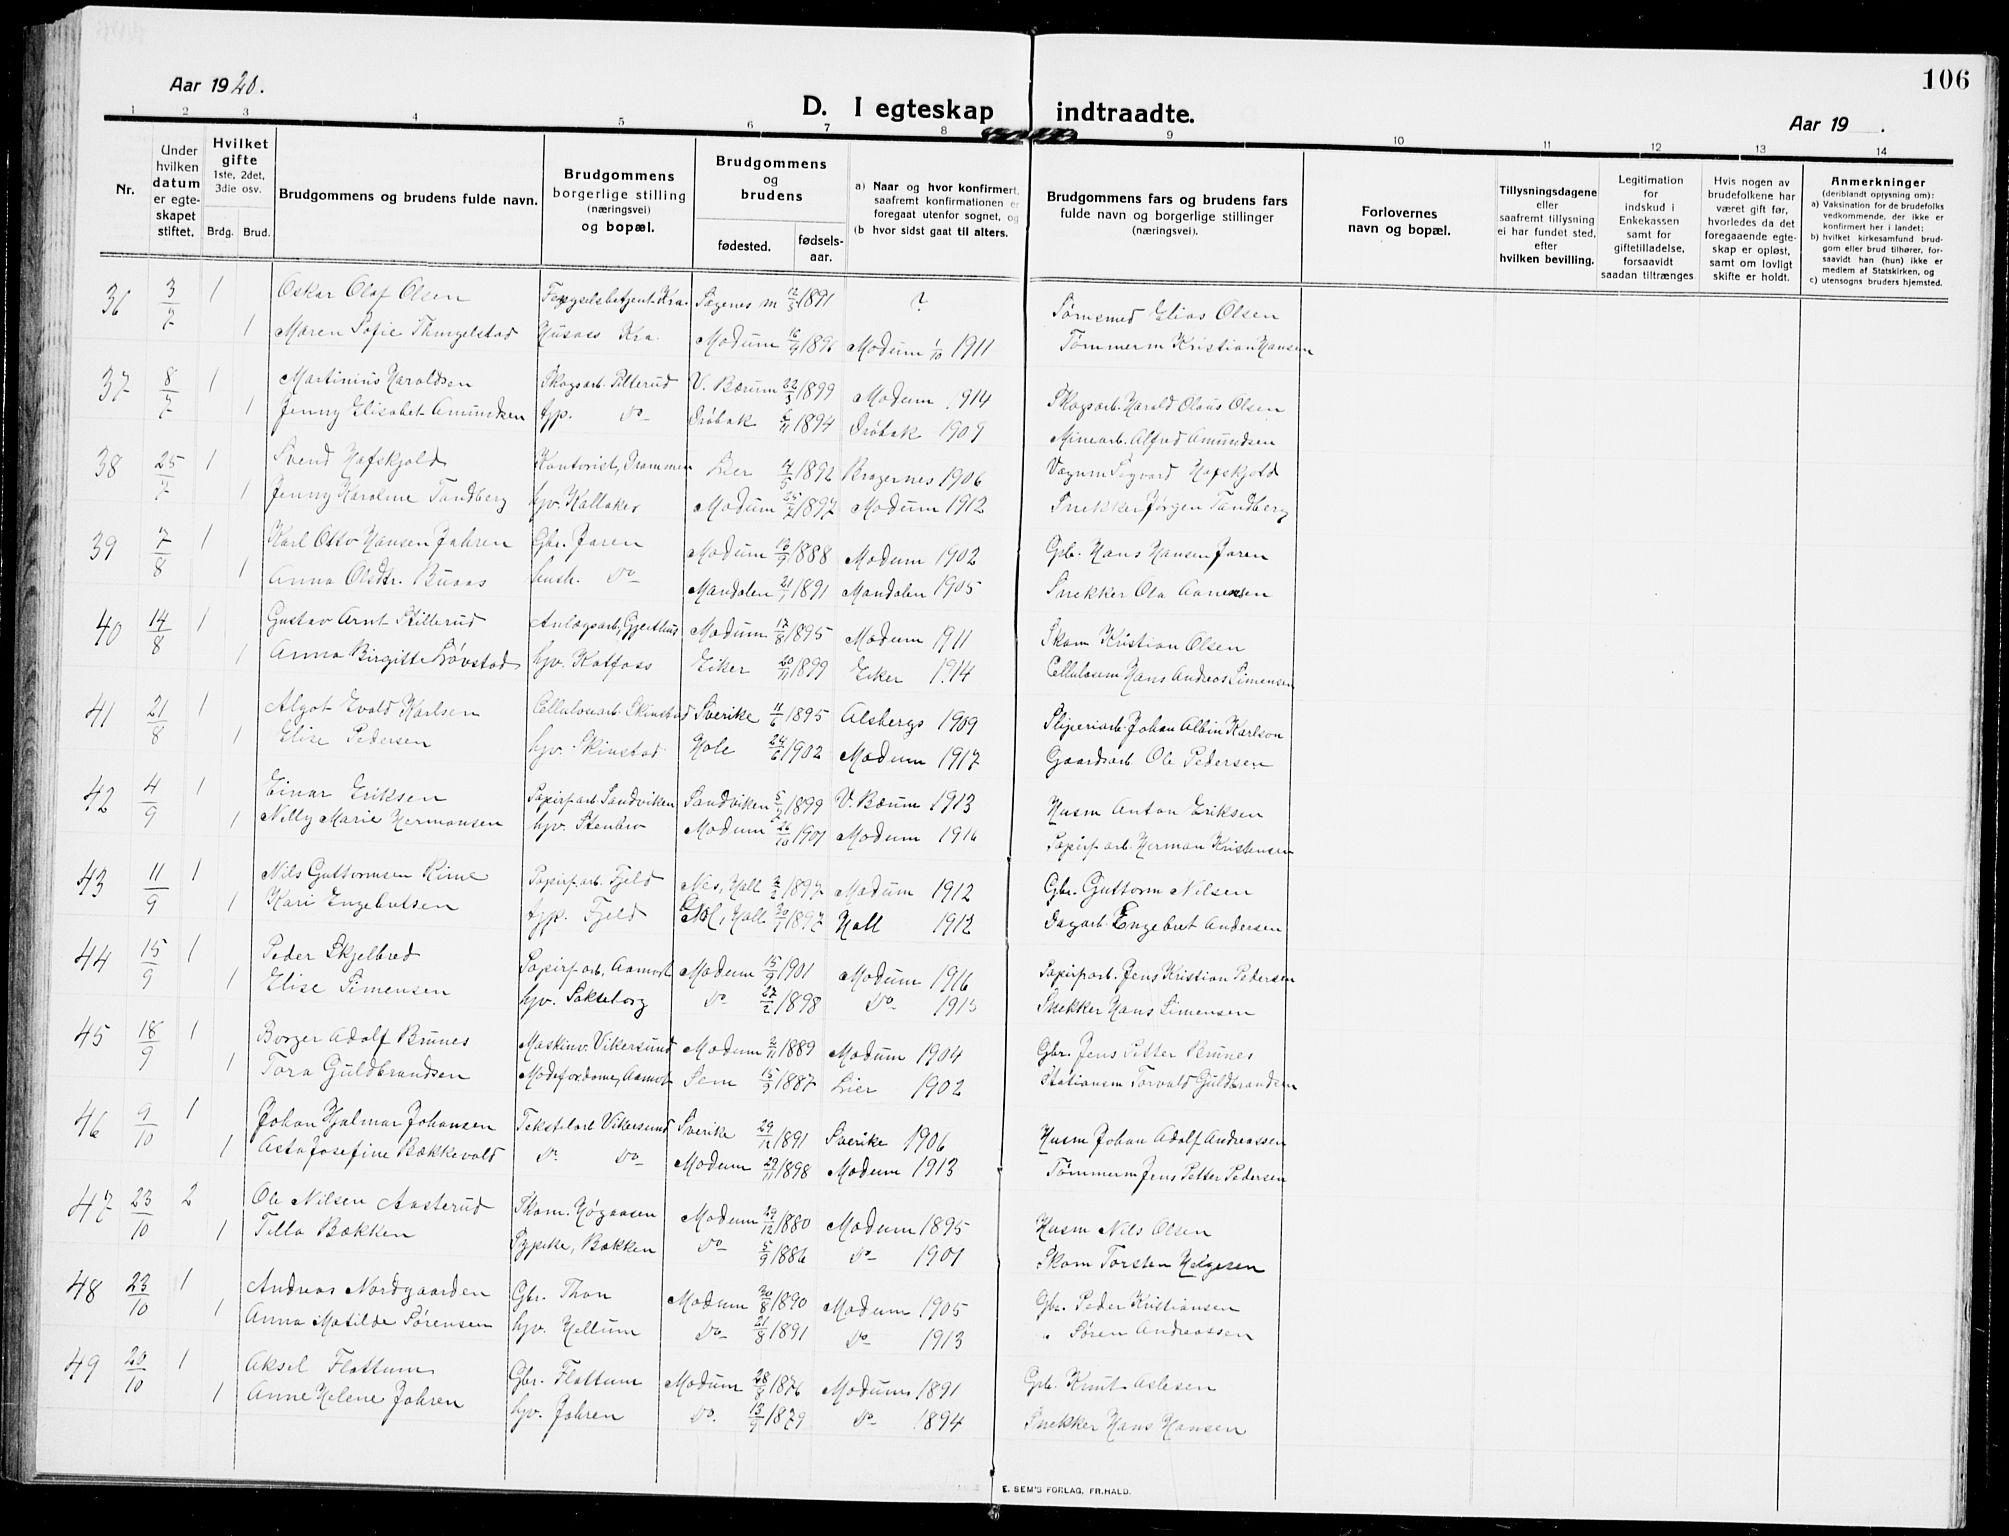 106
Aar 1920.
D. I egteskap indtraadte.
Aar 19 .
1 2 3 4 5 6 7 8 9 10 11 12 13 14
Nr.
Under hvilken datum er egteskapet stiftet.
Hvilket gifte 1ste, 2det, 3die osv.
Brdg. Brud.
Brudgommens og brudens fulde navn.
Brudgommens borgerlige stilling (næringsvei) og bopæl.
Brudgommens og brudens
fødested. fødselsaar.
a) Naar og hvor konfirmert, saafremt konfirmationen er foregaat utenfor sognet, og
(b hvor sidst gaat til alters.
Brudgommens fars og brudens fars fulde navn og borgerlige stillinger (næringsvei).
Forlovernes navn og bopæl.
Tillysningsdagene eller saafremt tillysning ei har fundet sted, efter hvilken bevilling.
Legitimation for indskud i Enkekassen samt for giftetilladelse, forsaavidt saadan tiltrænges
Hvis nogen av brudefolkene har været gift før, hvorledes da det foregaaende egteskap er opløst, samt om lovligt skifte er holdt.
Anmerkninger (deriblandt oplysning om):
a) Vaksination for de brudefolks vedkommende, der ikke er konfirmert her i landet;
b) hvilket kirkesamfund brudgom eller brud tilhører, forsaavidt han (hun) ikke er medlem af Statskirken, og
c) utensogns bruders hjemsted.
36 3/7 1 Oskar Olaf Olsen Fengselsbetjent Kra. Sagenes m 12/5 1891 ? Tømsmed Elias Olsen
1 Maren Sofie Thingelstad Husass Kra. Modum 16/9 1896 Modum 1/10 1911 Tømmerm Kristian Hansen
37 8/7 1 Martinius Haroldsen Skogsarb. Pilterud V. Bærum 22/3 1899 Modum 1914 Skogsarb. Harald Olaus Olsen
1 Jenny Elisabet Amundsen fjp. do Drøbak 6/11 1894 Drøbak 1909 Minearb. Alfred Amundsen
38 25/7 1 Svend Hafskjold Kontorist, Drammen Lier 14/5 1892 Bragernes 1906 Vognm Sigvard Hafskjold
1 Jenny Karoline Tandberg hjv. Kallaker Modum 25/7 1897 Modum 1912 Snekker Jørgen Tandberg
39 7/8 1 Karl Otto Hansen Jahren Gbr. Jaren Modum 13/9 1888 Modum 1902 Gbr. Hans Hansen Jaren
1 Anna Olsdtr. Buaas hush. do Mandalen 21/1 1891 Mandalen 1905 Snekker Ola Aanensen
40 14/8 1 Gustav Arnt Stillerud Anlægsarb, Gjeithus Modum 17/8 1895 Modum 1911 Skom Kristian Olsen
1 Anna Birgitte Løvstad hjv. Katfoss Eiker 20/11 1899 Eiker 1914 Cellulosem Hans Andreas Simensen
41 21/8 1 Algot Evald Karlsen Cellulosearb. Skinstad Sverike 11/6 1895 Alsbergs 1909 Sliperiarb. Johan Albin Karlson
1 Elise Pedersen hjv. Skinstad Hole 24/6 1902 Modum 1917 Gaardsarb Ole Pedersen
42 4/9 1 Einar Eriksen Papirf.arb. Sandviken Sandviken 5/2 1899 V. Bærum 1913 Husm Anton Eriksen
1 Nilly Marie Hermansen hjv. Stenbro Modum 26/10 1901 Modum 1916 Papirf.arb. Herman Kristensen
43 11/9 1 Nils Guttormsen Rime Papirf.arb. Fjeld Nes, Hall 2/2 1897 Modum 1912 Gbr. Guttorm Nilsen
1 Kari Engebretsen fjp. Fjeld Gol, Hall 30/9 1897 Hall 1912 Dagarb. Engebret Andersen
44 15/9 1 Peder Skjelbred Papirf.arb, Aamot Modum 15/9 1901 Modum 1916 Papirf.arb. Jens Kristian Pedersen
1 Elise Simensen hjv. Sakseborg do 27/2 1898 do 1913 Snekker Hans Simensen
45 18/9 1 Borger Adolf Brunes Maskinv. Vikersund Modum 2/11 1889 Modum 1904 Gbr. Jens Petter Brunes
1 Tora Guldbrandsen Modeforr.dame, Aamot Sem 15/9 1887 Lier 1902 Stationsm Torvald Guldbrandsen
46 9/10 1 Johan Hjalmar Johansen Tekstilarb Vikersund Sverike 29/12 1891 Sverike 1906 Husm Johan Adolf Andreassen
1 Asta Josefine Bækkevold do do Modum 29/11 1898 Modum 1913 Tømmerm Jens Petter Pedersen
47 23/10 2 Ole Nilsen Aasterud Skom. Høgaasen Modum 29/12 1880 Modum 1895 Husm Nils Olsen
1 Tilla Bækken Sypike, Bækken do 5/9 1886 do 1901 Skom Torsten Helgesen
48 23/10 1 Andreas Nordgaarden Gbr. Thon Modum 30/8 1890 Modum 1905 Gbr. Peder Kristiansen
1 Anna Matilde Sørensen hjv. Hellum do 21/8 1891 do 1913 " Søren Andreassen
49 20/10 1 Aksel Flattum Gbr. Flattum Modum 28/8 1876 Modum 1891 Grb. Knut Aslesen
1 Anne Helene Jahren hjv. Jahren do. 13/9 1879 do 1894 Snekker Hans Hansen
E. SEM'S FORLAG, FR.HALD.